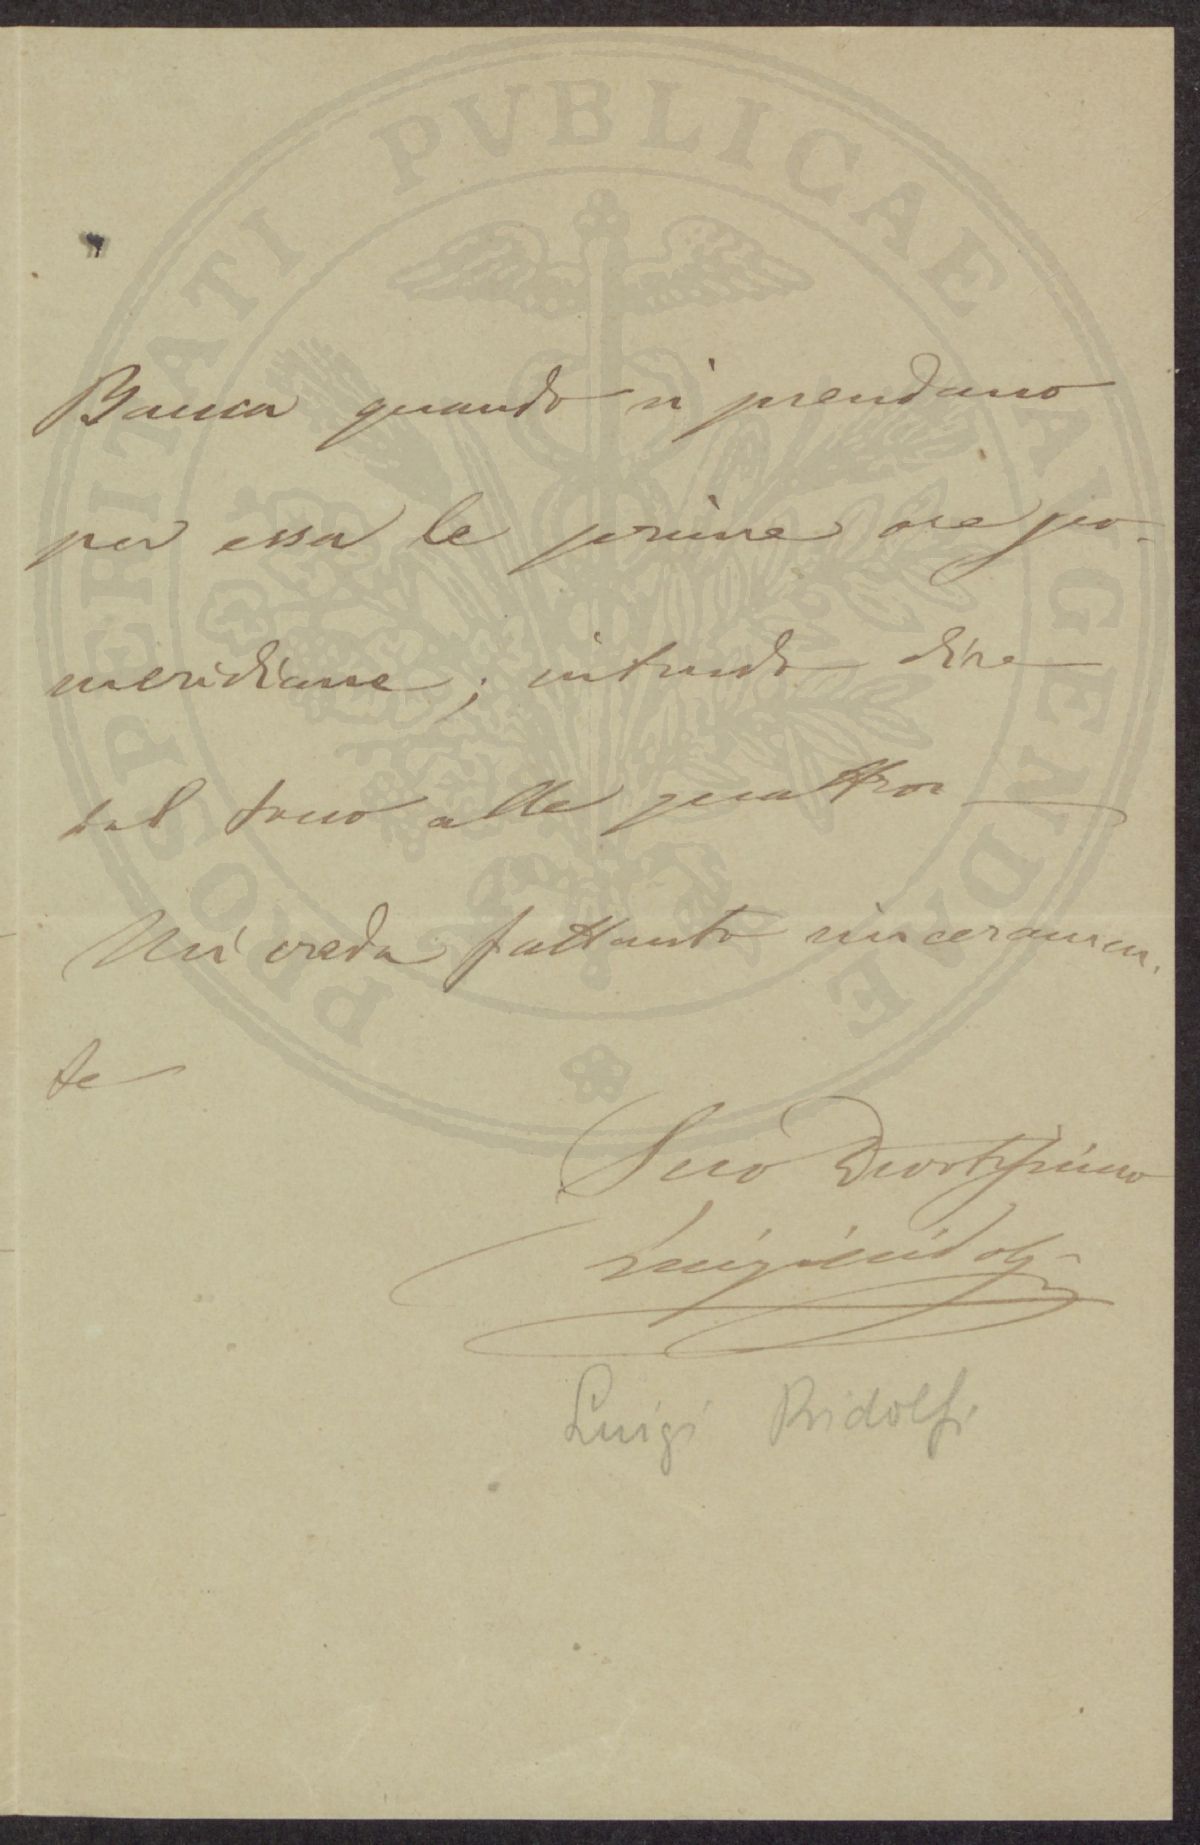 PROSPERITATI PVBLICAE AVGENDAE
Banca quando si prendano
per essa le prime ore po-
meridiane; intendo dire
dal tocco alle quattro
Mi creda frattanto sinceramen-
te
Suo Devotissimo
Luigi Ridolfi
Luigi Ridolfi